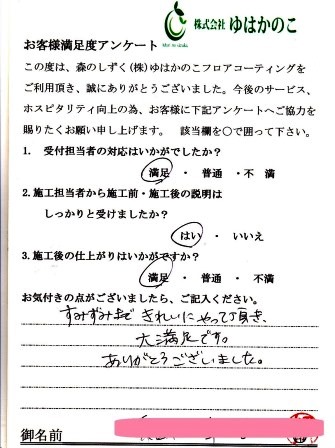 株式会社 ゆはかのこ
お客様満足度アンケート
この度は、森のしずく(株)ゆはかのこフロアコーティングを
ご利用頂き、誠にありがとうございました。今後のサービス、
ホスピタリティ向上の為、お客様に下記アンケートへご協力を
賜りたくお願い申し上げます。 該当欄を○で囲って下さい。
1. 受付担当者の対応はいかがでしたか?
満足 ・ 普通 ・不 満
2.施工担当者から施工前・施工後の説明は
しっかりと受けましたか?
はい ・ いいえ
3.施工後の仕上がりはいかがですか?
満足 ・ 普通 ・ 不満
お気付きの点がございましたら、ご記入ください。
すみずみまで きれいにやって頂き、
大満足です。
ありがとうございました。
御名前